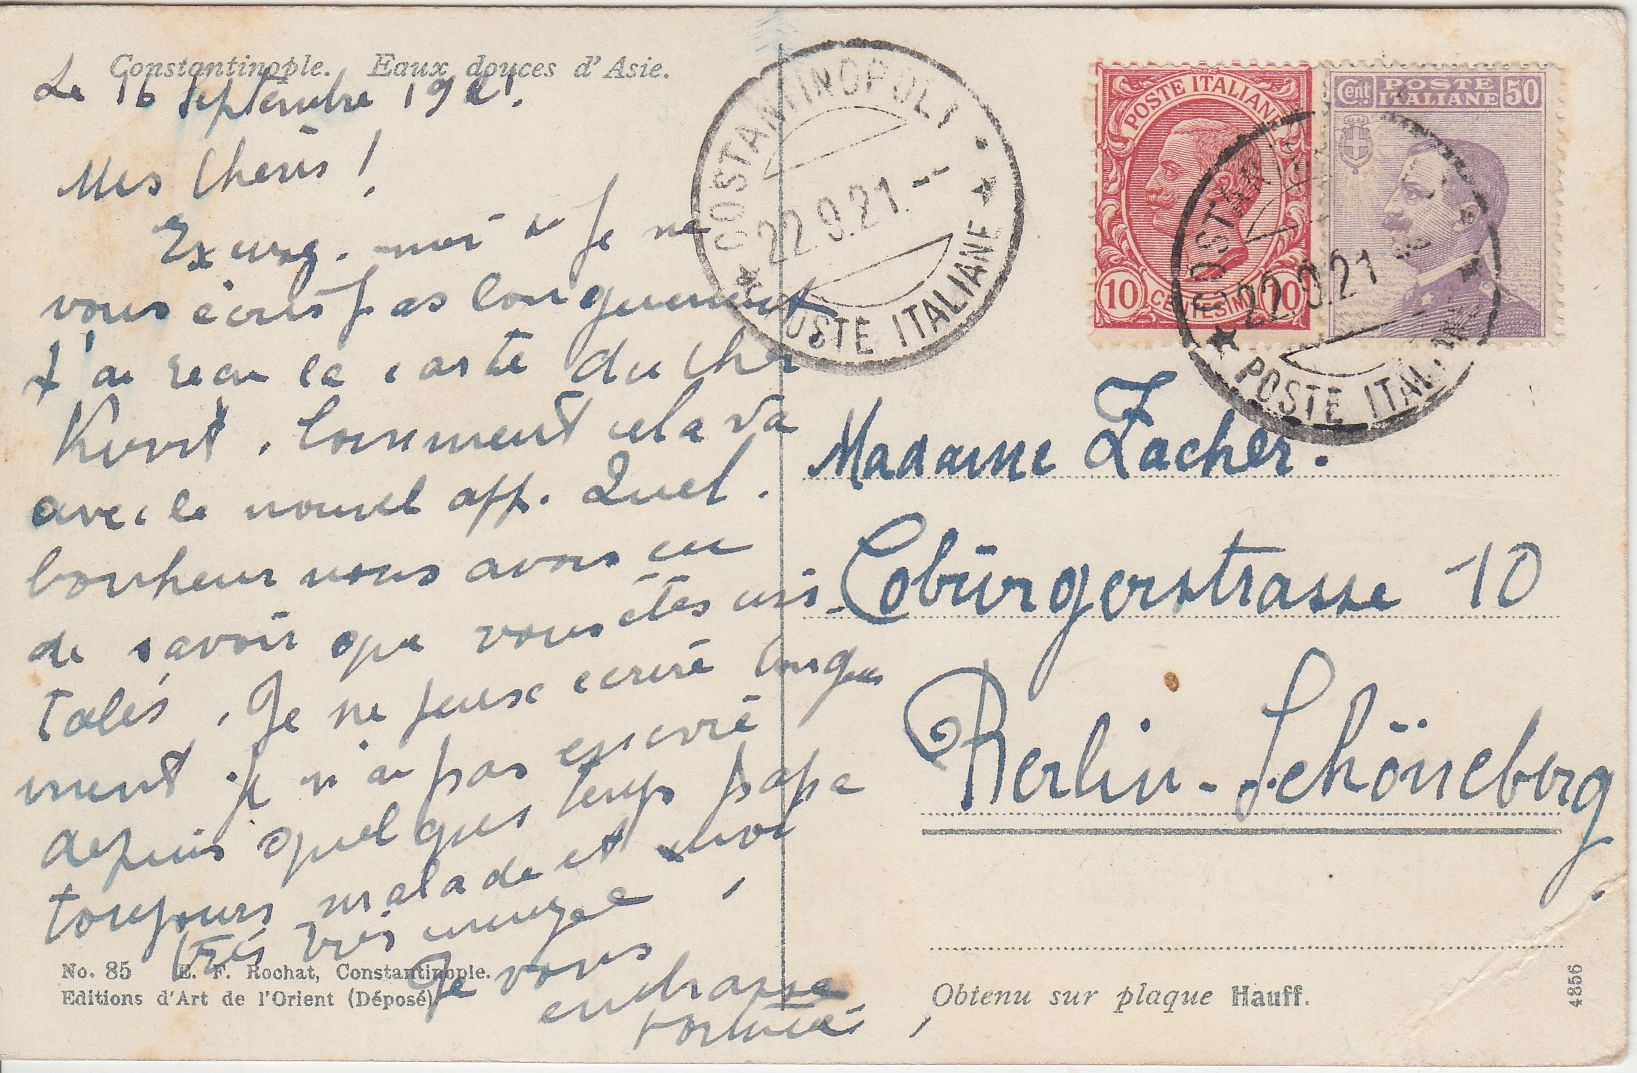 Constantinople. Eaux douces d'Asie.
Le 16 Septembre 1921.
Mes Chéris !
Excusez-moi si Je ne
vous écris pas longuement
J'ai reçu la carte du cher
Kurt. Comment cela va
avec le nouvel app. Quel
bonheur nous avons eu
de savoir que vous étes ins-
talés, Je ne peux écrire longue
ment je n'ai pas
depuis quelque temps papa
toujours malade et moi
très très
Je vous
embrasse
No. 85 E. F. Rochat, Constantinople.
Editions d'Art de l'Orient (Déposé)
COSTANTINOPOLI
22.9.21.--
★ POSTE ITALIANE ★
POSTE ITALIANE
10 CENTESIMI 10
Cent POSTE ITALIANE 50
22.9.21
★ POSTE ITALIANE ★
Madame Zacher.
Cobūrgerstrasse 10
Berlin-Schöneberg
Obtenu sur plaque Hauff.
4856